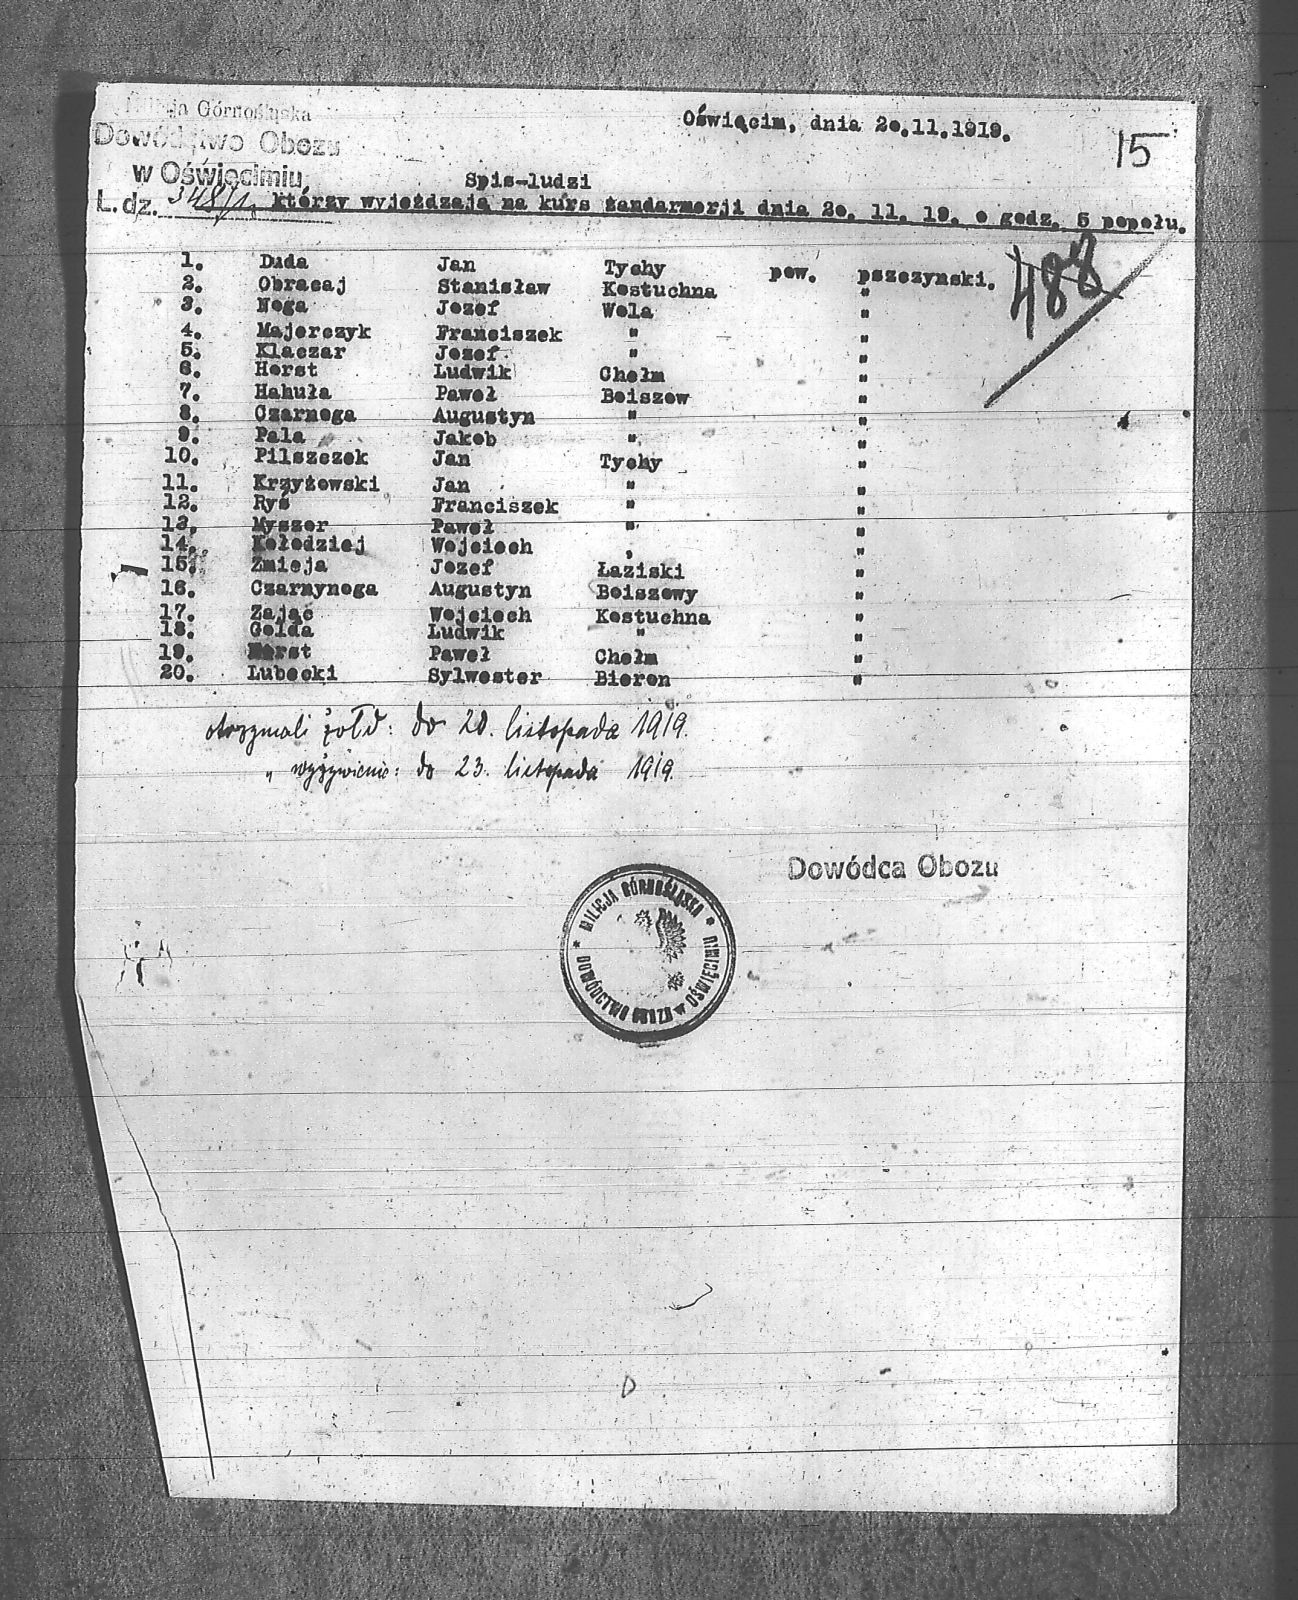 Milicja Górnośląska
Dowództwo Obozu
w Oświęcimiu,
L. dz. 348/1.
Oświęcim, dnia 20.11.1919.
15
Spis-ludzi
którzy wyjeżdzają na kurs żandarmerji dnia 20. 11. 19. o godz. 5 popołu.
488
1. Dada Jan Tychy pow. pszczynski.
2. Obracaj Stanisław Kostuchna "
3. Noga Jozef Wola "
4. Majerczyk Franciszek " "
5. Klaczar Jozef " "
6. Horst Ludwik Chełm "
7. Hahuła Paweł Boiszow "
8. Czarnoga Augustyn " "
9. Pala Jakob " "
10. Pilszczek Jan Tychy "
11. Krzyżowski Jan " "
12. Ryś Franciszek " "
13. Myszor Paweł " "
14. Kołodziej Wojciech , "
15. Żmieja Jozef Łaziski "
16. Czarnynoga Augustyn Boiszowy "
17. Zając Wojciech Kostuchna "
18. Golda Ludwik " "
19. Horst Paweł Chełm "
20. Lubocki Sylwester Bieron "
otrzymali żołd: do 20. listopada 1919.
" wyżywienie: do 23. listopada 1919.
Dowódca Obozu
* MILICJA GÓRNOŚLĄSKA *
DOWÓDCTWO OBOZU w OŚWIĘCIMIU